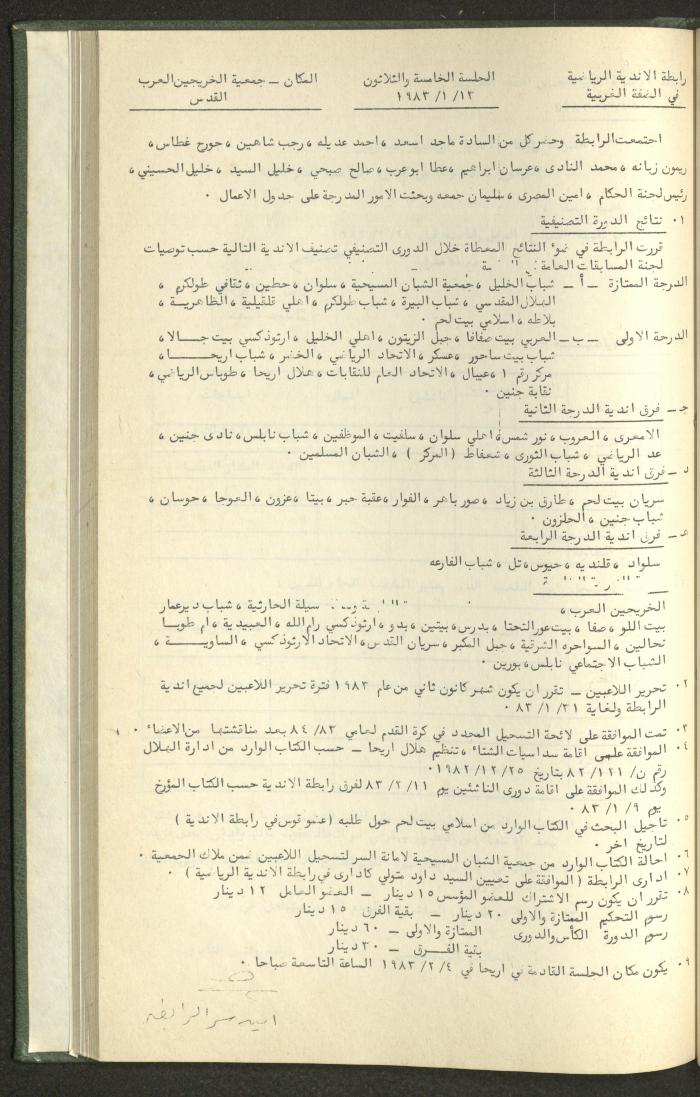 رابطة الاندية الرياضية الجلسة الخامسة والثلاثون المكان ــ جمعية الخريجين العرب
في الضفة الغربية ١٣/ ١/ ١٩٨٣ القدس
احتمعت الرابطة وحضر كل من السادة ماجد اسعد ، احمد عديله ، رجب شاهين ، جورج غطاس ،
ريمون زبانه ، محمد النادى ، عرسان ابراهيم ، عطا ابو عرب ، صالح صبحي ، خليل السيد ، خليل الحسيني ،
رئيس لجنة الحكام ، امين المصرى ، سليمان جمعه وبحثت الامور المدرجة على جدول الاعمال ٠
١٠ نتائج الدورة التصنيفية
قررت الرابطة في ضوء النتائج المعطاة خلال الدورى التصنيفي تصنيف الاندية التالية حسب توصيات
لجنة المسابقات العامة :
الدرجة الممتازة ــ أ ــ شباب الخليل ، جمعية الشبان المسيحية ، سلوان ، حطين ، ثقافي طولكرم ،
الهلال المقدسي ، شباب البيرة ، شباب طولكرم ، اهلي قلقيلية ، الظاهريـة ،
بلاطه ، اسلامي بيت لحم ٠
الدرجة الاولى ــ ب ــ العربي بيت صفافا ، جبل الزيتون ، اهلي الخليل ، ارثوذكسي بيت جـالا ،
شباب بيت ساحور ، عسكر ، الاتحاد الرياضي ، الخضر ، شباب اريحـا ،
مركز رقم ١ ، عيبال ، الاتحاد العام للنقابات ، هلال اريحا ، طوباس الرياضي ،
نقابة جنين ٠
جـ ــ فرق اندية الدرجة الثانية
الامعرى ، العروب ، نور شمس ، اهلي سلوان ، سلفيت ، الموظفين ، شباب نابلس ، نادى جنين ،
عد الرياضي ، شباب الثورى ، شعفاط ( المركز ) ، الشبان المسلمين ٠
د ــ فرق اندية الدرجة الثالثة
سريان بيت لحم ، طارق بن زياد ، صور باهر ، الفوار ، عقبة جبر ، بيتا ، عزون ، العوجا ، حوسان ،
شباب جنين ، الجلزون ٠
هـ ــ فرق اندية الدرجة الرابعة
سلواد ، قلنديه ، جيوس ، تل ، شباب الفارعه
الخريجين العرب ، سيلة الحارثية ، شباب دير عمار
بيت اللو ، صفا ، بيت عور التحتا ، بدرس ، بيتين ، بدو ، ارثوذكسي رام الله ، العبيدية ، ام طوبـا
نحالين ، السواحره الشرقية ، جبل المكبر ، سريان القدس ، الاتحاد الارثوذكسي ، الساويـة ،
الشباب الاجتماعي نابلس ، بورين ٠
٢٠ تحرير اللاعبين ــ تقرر ان يكون شهر كانون ثاني من عام ١٩٨٣ فترة تحرير اللاعبين لجميع اندية
الرابطة ولغاية ٣١/ ١/ ٨٣ ٠
٣٠ تمت الموافقة على لائحة التسجيل المحدد في كرة القدم لعامي ٨٣/ ٨٤ بعد مناقشتها من الاعضاء ٠
٤٠ الموافقة على اقامة سداسيات الشتاء ، تنظيم هلال اريحا ــ حسب الكتاب الوارد من ادارة الهلال
رقم ن/ ١٢١/ ٨٢ بتاريخ ٢٥/ ١٢/ ١٩٨٢ ٠
وكذلك الموافقة على اقامة دورى الناشئين يوم ١١/ ٢/ ٨٣ لفرق رابطة الاندية حسب الكتاب المؤرخ
يوم ٩/ ١/ ٨٣ ٠
٥٠ تأجيل البحث في الكتاب الوارد من اسلامي بيت لحم حول طلبه ( عضو قوس في رابطة الاندية )
لتاريخ اخر ٠
٦٠ احالة الكتاب الوارد من جمعية الشبان المسيحية لامانة السر لتسجيل اللاعبين ضمن ملاك الجمعية ٠
٧٠ ادارى الرابطة ( الموافقة على تعيين السيد داود متولي كادارى في رابطة الاندية الرياضية ) ٠
٨٠ تقرر ان يكون رسم الاشتراك للعضو المؤسس ١٥ دينار ــ العضو العامل ١٢ دينار
رسوم التحكيم الممتازة والاولى ٢٠ دينار ــ بقية الفرق ١٥ دينار
رسوم الدورة الكأس والدورى الممتازة والاولى ــ ٦٠ دينار
بقية الفـرق ــ ٣٠ دينار
٩٠ يكون مكان الجلسة القادمة في اريحا في ٤/ ٢/ ١٩٨٣ الساعة التاسعة صباحا ٠
امين سر الرابطة